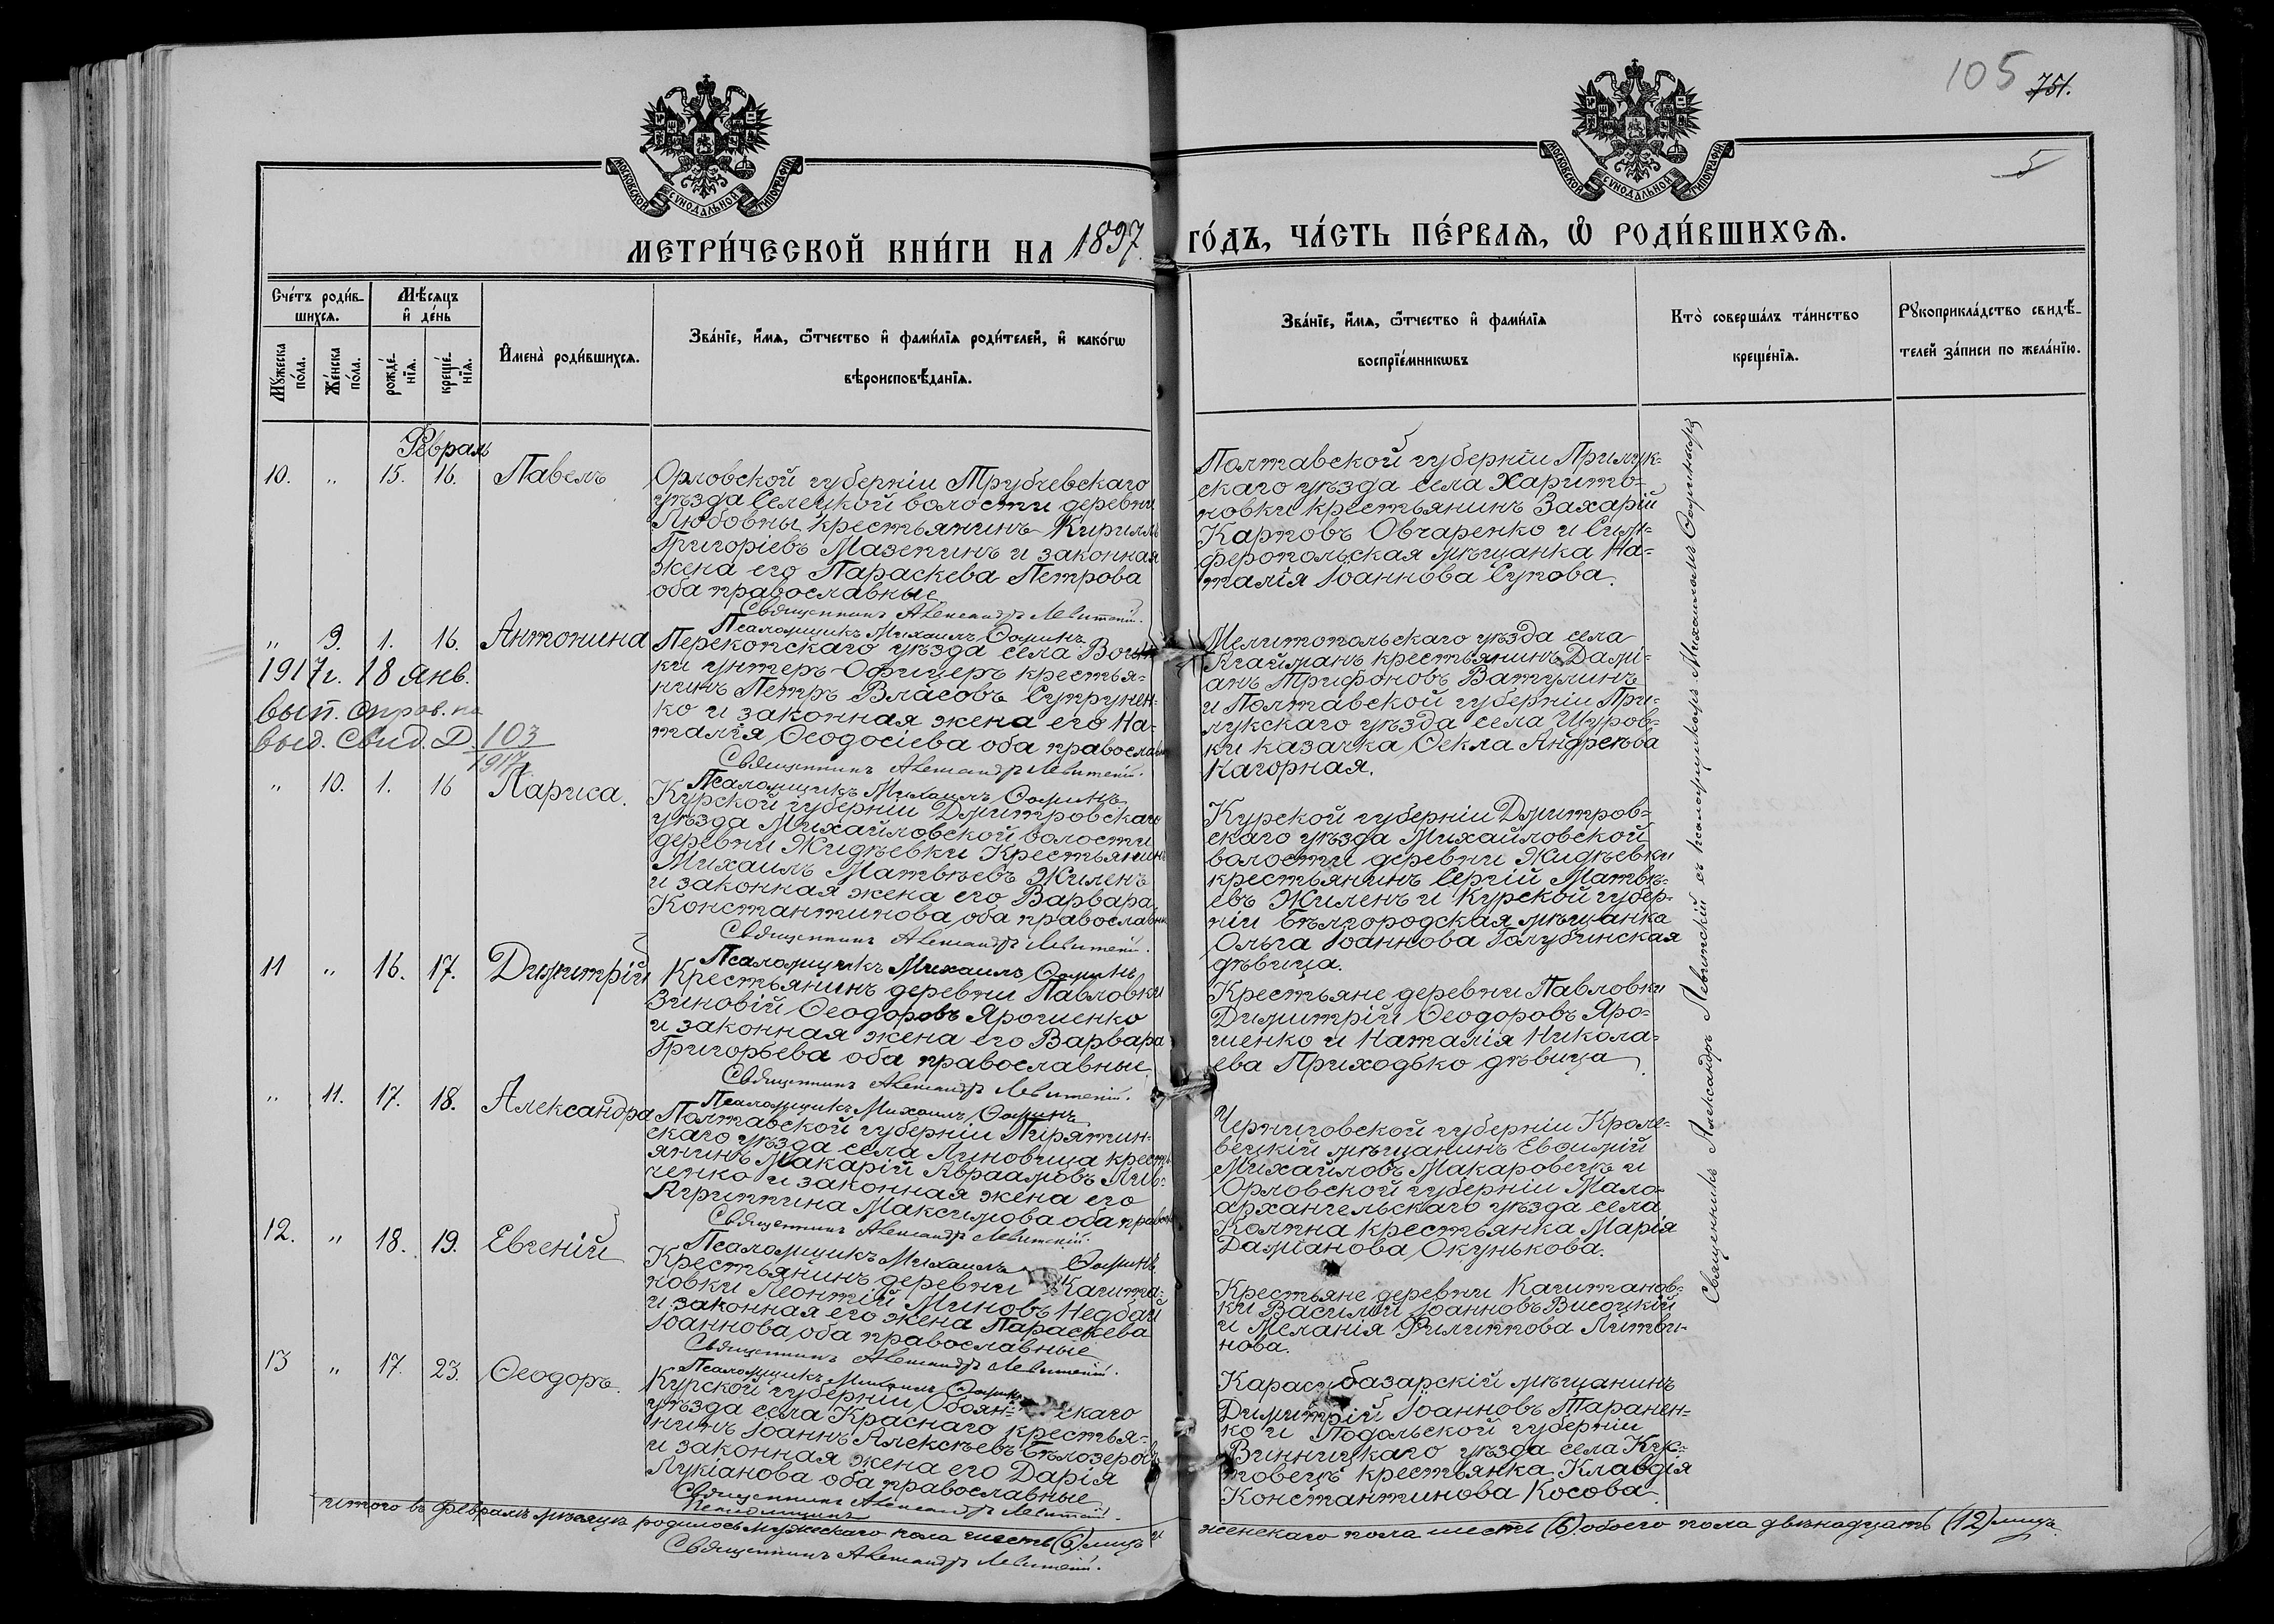 105 751.
5
МОСКОВСКОЙ СѴНОДАЛЬНОЙ ТИПОГРАФІИ
МОСКОВСКОЙ СѴНОДАЛЬНОЙ ТИПОГРАФІИ
МЕТРИ́ЧЕСКОЙ КНИ́ГИ НА 1897. ГО́ДЪ, ЧА́СТЬ ПЕ́РВАѦ, Ѽ РОДИ́ВШИХСѦ.
Сче́тъ роди́в-
шихсѧ.
Мꙋ́жеска по́ла.
Же́нска по́ла.
Мѣ́сѧцъ
и҆ де́нь
рожде́-
нїѧ.
креще́-
нїѧ.
И҆мена̀ роди́вшихсѧ.
Зва́нїе, и҆́мѧ, ѻ҆́тчество и҆ фами́лїѧ роди́телей, и҆ како́гѡ
вѣроисповѣ́данїѧ.
Зва́нїе, и҆́мѧ, ѻ҆́тчество и҆ фами́лїѧ
воспрїе́мникѡвъ
Кто̀ соверша́лъ та́инство
креще́нїѧ.
Рꙋкоприкла́дство свидѣ́-
телей за́писи по жела́нїю.
Февраль
10. " 15. 16. Павелъ
Орловской губерніи Трубчевскаго
уѣзда Селецкой волости деревни
Любовны крестьянинъ Кириллъ
Григоріевъ Мазепинъ и законная
жена его Параскева Петрова
оба православные
Священникъ Александръ Левитскій.
Псаломщикъ Михаилъ Ѳоминъ
Полтавской губерніи Прилук-
скаго уѣзда села Харито-
новки крестьянинъ Захарій
Карповъ Овчаренко и Сим-
феропольская мѣщанка На-
талія Іоаннова Супова.
" 9. 1. 16. Антонина
1917 г. 18 янв.
вып. справ. на
выд. свид. Д. 103
1917
Перекопскаго уѣзда села
ки унтеръ-Офицеръ крестья-
нинъ Петръ Власовъ Супрунен-
ко и законная жена его На-
талія Ѳеодосіева оба православные
Священникъ Александръ Левитскій.
Псаломщикъ Михаилъ Ѳоминъ
Мелитопольскаго уѣзда села
Агайманъ крестьянинъ Дамі-
анъ Трифоновъ Ватулинъ
и Полтавской губерніи При-
лукскаго уѣзда села Щуров-
ки казачка Ѳекла Андреева
Кагорная.
" 10. 1. 16 Лариса.
Курской губерніи Дмитровскаго
уѣзда Михайловской волости
деревни Жидѣевки Крестьянинъ
Михаилъ Матвѣевъ Жиленъ
и законная жена его Варвара
Константинова оба православные
Священникъ Александръ Левитскій.
Псаломщикъ Михаилъ Ѳоминъ
Курской губерніи Дмитров-
скаго уѣзда Михайловской
волости деревни Жидѣевки
крестьянинъ Сергій Матвѣ-
евъ Жиленъ и Курской губер-
ніи Бѣлгородская мѣщанка
Ольга Іоаннова Голубинская
дѣвица.
11 " 16. 17. Димитрій
Крестьянинъ деревни Павловки
Зиновій Ѳеодоровъ Ярошенко
и законная жена его Варвара
Григорьева оба православные
Священникъ Александръ Левитскій.
Псаломщикъ Михаилъ Ѳоминъ
Крестьяне деревни Павловки
Димитрій Ѳеодоровъ Яро-
шенко и Наталія Никола-
ева Приходько дѣвица
" 11. 17. 18. Александра
Полтавской губерніи Пирятин-
скаго уѣзда села Линовица крест-
янинъ Макарій Авраамовъ
ченко и законная жена его
Агриппина Максимова оба правосл
Священникъ Александръ Левитскій.
Псаломщикъ Михаилъ Ѳоминъ
Черниговской губерніи Кроле-
вецкій мѣщанинъ Евѳимій
Михайловъ Макаровецъ и
Орловской губерніи Мало-
архангельскаго уѣзда села
Колпна крестьянка Марія
Даміанова Окунькова.
12. " 18. 19. Евгеній
Крестьянинъ деревни Кашта-
новки Леонтій Миновъ Недбай
и законная его жена Параскева
Іоаннова оба православные
Священникъ Александръ Левитскій.
Псаломщикъ Михаилъ Ѳоминъ
Крестьяне деревни Каштанов-
ки Василій Іоанновъ Висоцкій
и Меланія Филиппова Литви-
нова.
13 " 17. 23. Ѳеодоръ.
Курской губерніи Обоян- скаго
уѣзда села Краснаго крестья-
нинъ Іоаннъ Алексѣевъ Бѣлозеровъ
и законная жена его Дарія
Лукіанова оба православные
Священникъ Александръ Левитскій.
Псаломщикъ
Карасубазарскій мѣщанинъ
Димитрій Іоанновъ Таранен-
ко и Подольской губерніи
Винницкаго уѣзда села
товецъ крестьянка Клавдія
Константинова Косова.
Священникъ Александръ Левитскій съ псаломщикомъ Михаиломъ Ѳоминымъ
Итого въ февралѣ мѣсяцѣ родилось мужескаго пола шесть (6) лицъ и женскаго пола шесть (6) обоего пола двѣнадцать (12) лицъ.
Священникъ Александръ Левитскій.